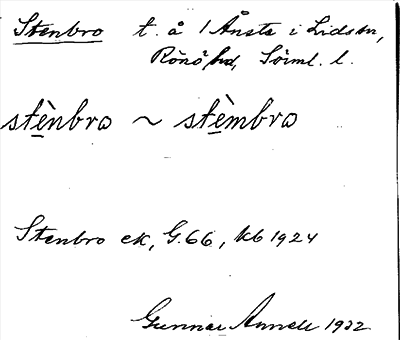 Stenbro t. å 1 Ånsta i Lidsbr,
Rönö hd, Söml. l.
stènbro ~ stèmbro
Stenbro ek, G.66, kb 1924
Gunnar Annell 1932